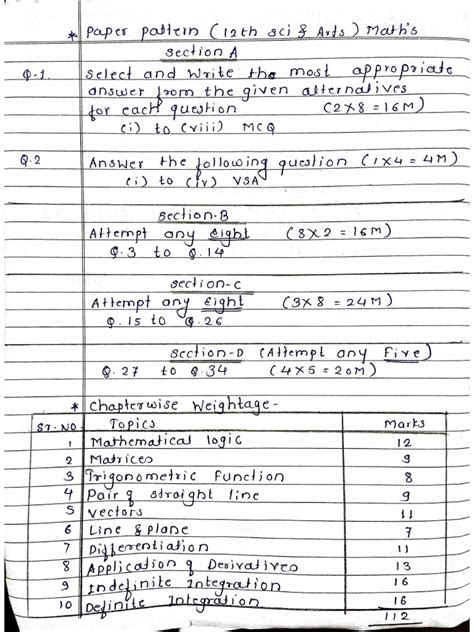 * Paper pattern ( 12th sci & Arts ) Math's
section A
Q-1. select and write the most appropriate
answer from the given alternatives
for each question (2x8 = 16M)
(i) to (viii) MCQ
Q.2 Answer the following question (1x4 = 4M)
(i) to (iv) VSA
section-B
Attempt any Eight (8x2 = 16M)
Q.3 to Q.14
section-C
Attempt any Eight (3x8 = 24M)
Q.15 to Q.26
section-D (Attempt any Five)
Q.27 to Q.34 (4x5 = 20M)
* Chapterwise Weightage -
Sr.NO Topics Marks
1 Mathematical logic 12
2 Matrices 9
3 Trigonometric Function 8
4 Pair of straight line 9
5 Vectors 11
6 Line & plane 7
7 Differentiation 11
8 Application of Derivatives 13
9 Indefinite Integration 16
10 Definite Integration 16
112